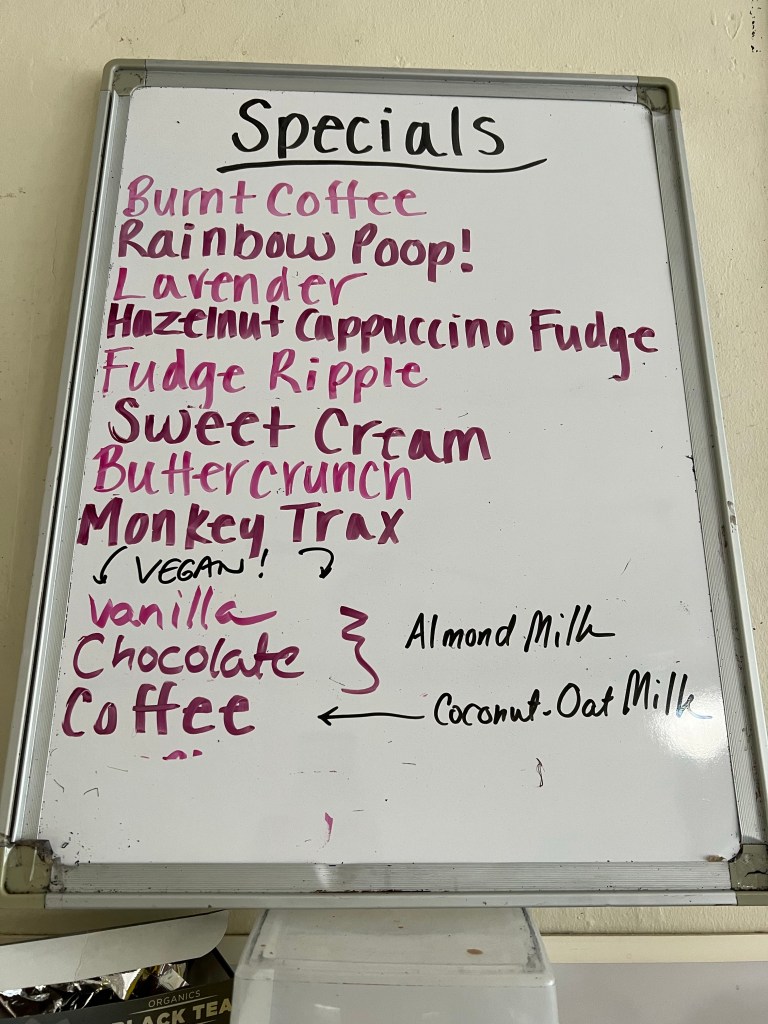 Specials
Burnt Coffee
Rainbow Poop!
Lavender
Hazelnut Cappuccino Fudge
Fudge Ripple
Sweet Cream
Buttercrunch
Monkey Trax
VEGAN!
Vanilla
Chocolate
Almond Milk
Coffee
Coconut-Oat Milk
ORGANICS
BLACK TEA